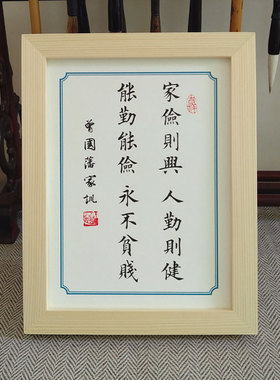 家儉則興人勤則健
能勤能儉永不貧賤
曾國藩家訓